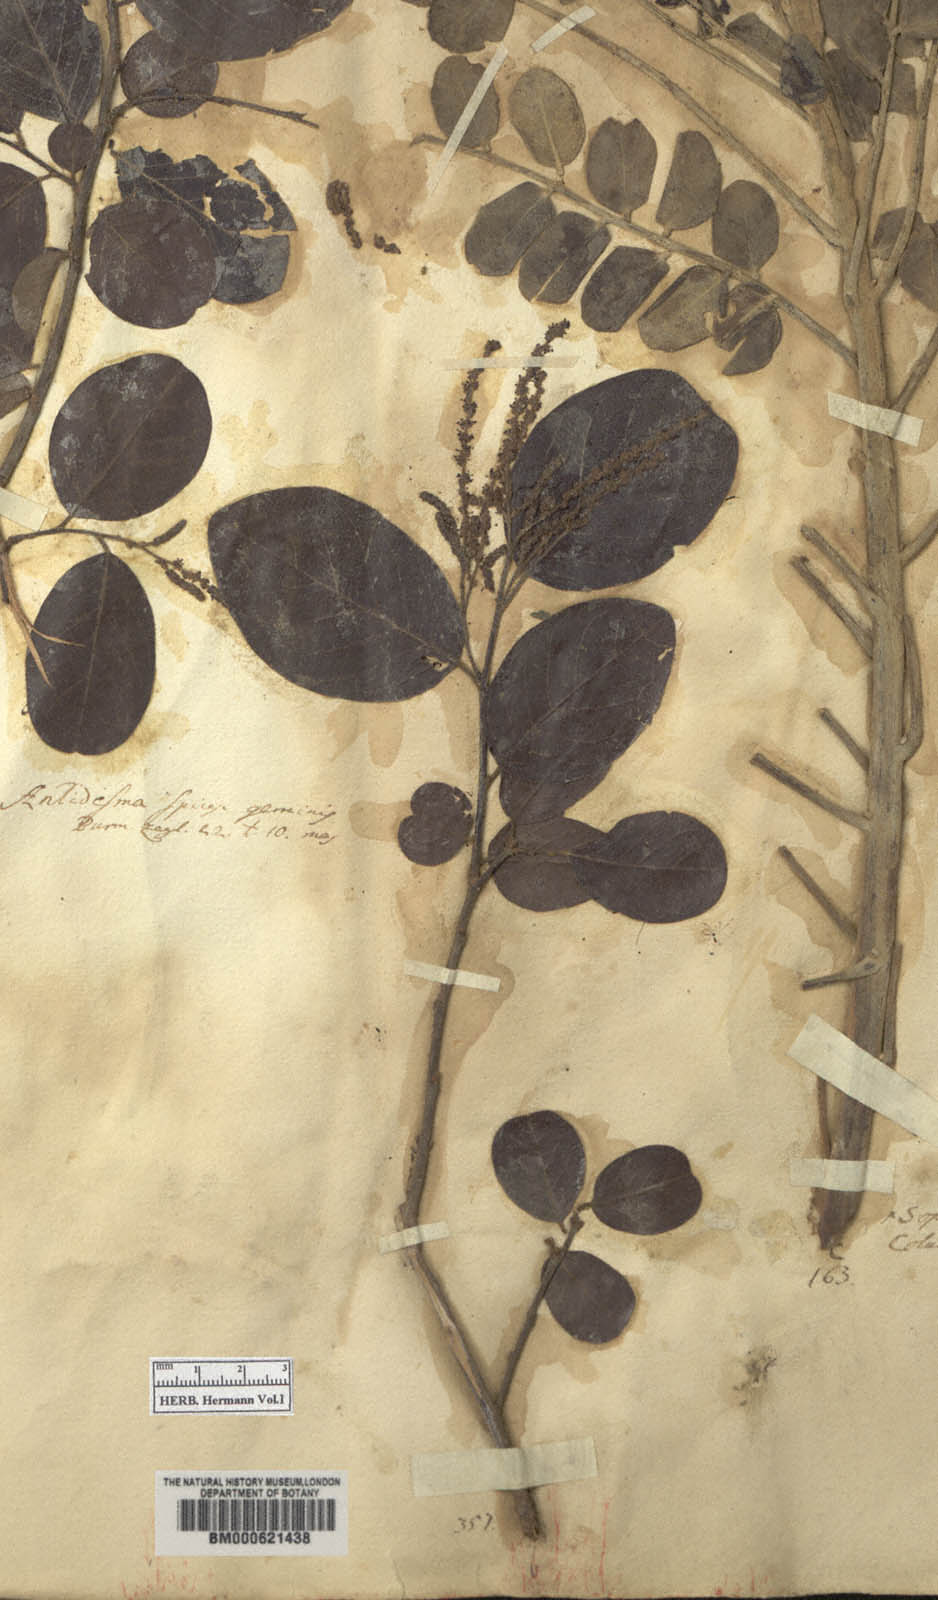 Antidesma spicis geminis
Burm zeyl. 22. t. 10. mas
C
163.
mm 1 2 3
HERB. Hermann Vol.1
THE NATURAL HISTORY MUSEUM,LONDON
DEPARTMENT OF BOTANY
BM000621438
357.